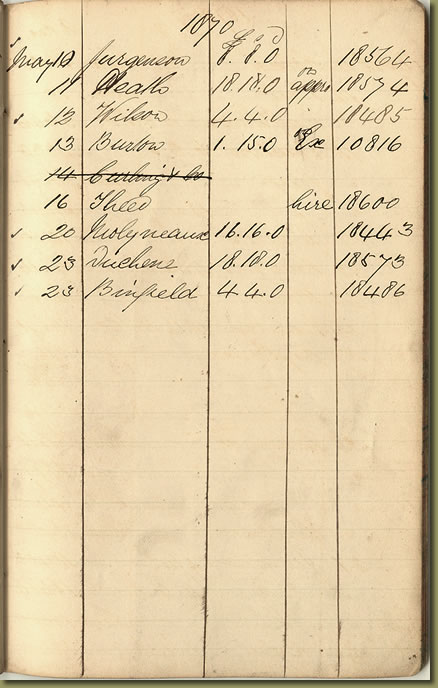 1870
£ s d
May 10 Jurgenson 8. 8. 0 18564
11 Heath 18. 18. 0 on appro 18574
s 12 Wilson 4. 4. 0 18485
13 Burton 1. 15. 0 Ex 10816
14 Curling & Co
16 Theed hire 18600
s 20 Molyneaux 16. 16. 0 18443
s 23 Duchene 18. 18. 0 18573
s 23 Binfield 4 4. 0 18486